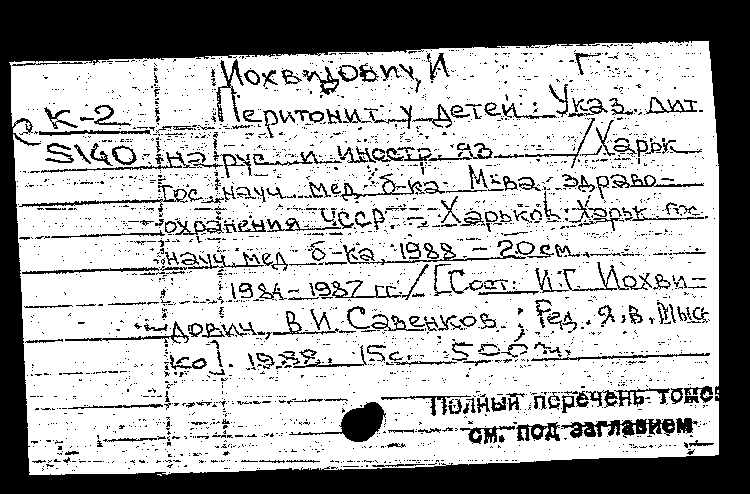 Иохвидович, И Г
К-2 Перитонит у детей: Указ. лит
5140 на рус. и иностр. яз. /Харьк
гос. науч. мед. б-ка М-ва здраво-
охранения УССР. – Харьков: Харьк гос
науч. мед. б-ка, 1988 – 20 см.
1984-1987 гг. / [Сост. И.Г. Иохви-
дович, В.И. Савенков; Ред. Я.В. Мыш
ко]. 1988. 15 с. 500 э.
Полный перечень томов
см. под заглавием